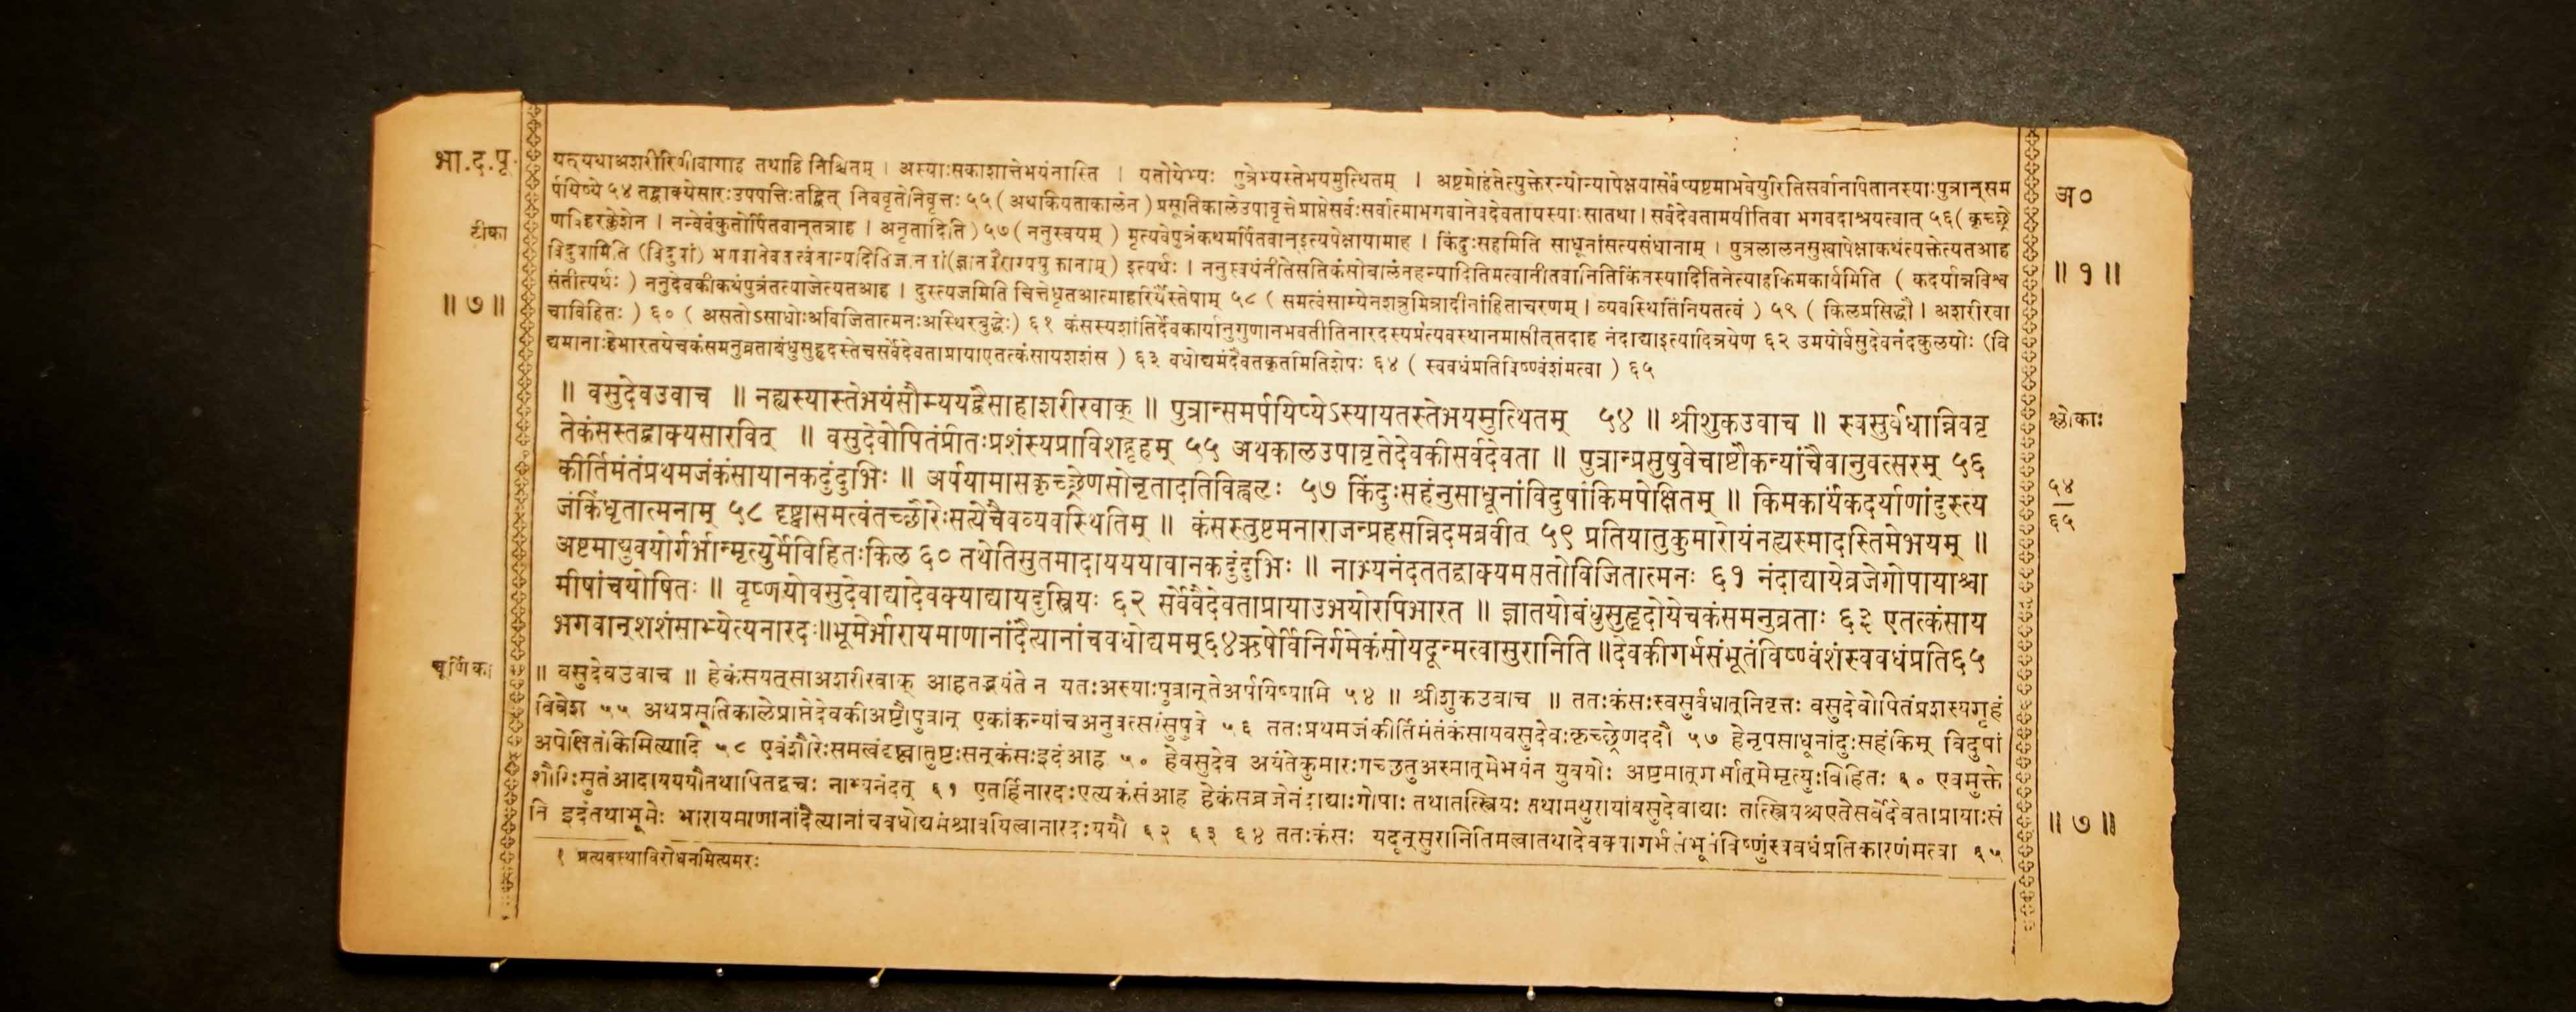 भा.द.पू.
यत्यथाअशरीरिणीवागाह तथाहि निश्चितम् । अस्याःसकाशात्तेभयंनास्ति । यतोयेभ्यः पुत्रेभ्यस्तेभयमुत्थितम् । अष्टमोहंतेत्युक्तेरन्योन्यापेक्षयासर्वेप्यष्टमाभवेयुरितिसर्वानपितानस्याःपुत्रान्सम
अ०
र्पयिष्ये ५४ तद्वाक्येसारःउपपत्तिःतद्वित् निववृतेनिवृत्तः ५५ ( अथकियताकालेन ) प्रसूतिकालेउपावृत्तेप्राप्तेसर्वःसर्वात्माभगवानेवदेवतायस्याःसातथा। सर्वदेवतामयीतिवा भगवदाश्रयत्वात् ५६ ( कृच्छ्रे
टीका
णविहरक्लेशेन । नन्वेवंकुतोर्पितवान्तत्राह । अनृतादिति ) ५७ ( ननुस्वयम् ) मृत्यवेपुत्रंकथमर्पितवान्इत्यपेक्षायामाह । किंदुःसहमिति साधूनांसत्यसंधानाम् । पुत्रलालनसुखापेक्षाकथंत्यक्तेत्यतआह
विदुषामिति (विदुषां) भगवानेवतत्त्वंनान्यदितिजानतां(ज्ञानवैराग्ययुक्तानाम्) इत्यर्थः । ननुस्वयंनीतेसतिकंसोबालंनहन्यादितिमत्वानीतवानितिकिंनस्यादितिनेत्याहकिमकार्यमिति ( कदर्यान्नविश्व
॥ १ ॥
संतीत्यर्थः ) ननुदेवकीकथंपुत्रंतत्याजेत्यतआह । दुस्त्यजमिति चित्तेधृतआत्माहरिर्यैस्तेषाम् ५८ ( समत्वंसाम्येनशत्रुमित्रादीनांहिताचरणम् । व्यवस्थितिंनियतत्वं ) ५९ ( किलप्रसिद्धौ । अशरीरवा
॥ ७ ॥
चाविहितः ) ६० ( असतोऽसाधोःअविजितात्मनःअस्थिरबुद्धेः) ६१ कंसस्यशांतिर्देवकार्यानुगुणानभवतीतिनारदस्यप्रत्यवस्थानमासीत्तदाह नंदाद्याइत्यादित्रयेण ६२ उभयोर्वसुदेवनंदकुलयोः (वि
द्यमानाःहेभारतयेचकंसमनुव्रताबंधुसुहृदस्तेचसर्वेदेवताप्रायाएतत्कंसायशशंस ) ६३ वधोद्यमंदैवतकृतमितिशेषः ६४ ( स्ववधंप्रतिविष्ण्वंशंमत्वा ) ६५
॥ वसुदेवउवाच ॥ नह्यस्यास्तेभयंसौम्ययद्वैसाहाशरीरवाक् ॥ पुत्रान्समर्पयिष्येऽस्यायतस्तेभयमुत्थितम् ५४ ॥ श्रीशुकउवाच ॥ स्वसुर्वधान्निववृ
श्लोकाः
तेकंसस्तद्वाक्यसारवित् ॥ वसुदेवोपितंप्रीतःप्रशंस्यप्राविशद्गृहम् ५५ अथकालउपावृत्तेदेवकीसर्वदेवता ॥ पुत्रान्प्रसुषुवेचाष्टौकन्यांचैवानुवत्सरम् ५६
कीर्तिमंतंप्रथमजंकंसायानकदुंदुभिः ॥ अर्पयामासकृच्छ्रेणसोनृतादतिविह्वलः ५७ किंदुःसहंनुसाधूनांविदुषांकिमपेक्षितम् ॥ किमकार्यंकदर्याणांदुस्त्य
५४
जंकिंधृतात्मनाम् ५८ दृष्ट्वासमत्वंतच्छौरेःसत्येचैवव्यवस्थितिम् ॥ कंसस्तुष्टमनाराजन्प्रहसन्निदमब्रवीत् ५९ प्रतियातुकुमारोयंनह्यस्मादस्तिमेभयम् ॥
६५
अष्टमाद्युवयोर्गर्भान्मृत्युर्मेविहितःकिल ६० तथेतिसुतमादायययावानकदुंदुभिः ॥ नाभ्यनंदततद्वाक्यमसतोविजितात्मनः ६१ नंदाद्यायेव्रजेगोपायाश्चा
मीषांचयोषितः ॥ वृष्णयोवसुदेवाद्यादेवक्याद्यायदुस्त्रियः ६२ सर्वेवैदेवताप्रायाउभयोरपिभारत ॥ ज्ञातयोबंधुसुहृदोयेचकंसमनुव्रताः ६३ एतत्कंसाय
भगवान्शशंसाभ्येत्यनारदः॥भूमेर्भारायमाणानांदैत्यानांचवधोद्यमम्६४ऋषेर्विनिर्गमेकंसोयदून्मत्वासुरानिति॥देवकीगर्भसंभूतंविष्ण्वंशंस्ववधंप्रति६५
चूर्णिका
॥ वसुदेवउवाच ॥ हेकंसयत्साअशरीरवाक् आहतद्भयंते न यतःअस्याःपुत्रान्तेअर्पयिष्यामि ५४ ॥ श्रीशुकउवाच ॥ ततःकंसःस्वसुर्वधात्निवृत्तः वसुदेवोपितंप्रशस्यगृहं
विवेश ५५ अथप्रसूतिकालेप्राप्तेदेवकीअष्टौपुत्रान् एकांकन्यांचअनुवत्सरंसुषुवे ५६ ततःप्रथमजंकीर्तिमंतंकंसायवसुदेवःकृच्छ्रेणददौ ५७ हेनृपसाधूनांदुःसहंकिम् विदुषां
अपेक्षितंकिमित्यादि ५८ एवंशौरेःसमत्वंदृष्ट्वातुष्टःसन्कंसःइदंआह ५० हेवसुदेव अयंतेकुमारःगच्छतुअस्मात्मेभयंन युवयोः अष्टमात्गर्भात्मेमृत्युःविहितः ६० एवमुक्ते
शौरिःसुतंआदायययौतथापितद्वचः नाभ्यनंदत् ६१ एतर्हिनारदःएत्यकंसंआह हेकंसव्रजेनंदाद्याःगोपाः तथातत्स्त्रियः तथामथुरायांवसुदेवाद्याः तत्स्त्रियश्चएतेसर्वेदेवताप्रायाःसं
ति इदंतथाभूमेः भारायमाणानांदैत्यानांचवधोद्यमंश्रावयित्वानारदःययौ ६२ ६३ ६४ ततःकंसः यदून्सुरानितिमत्वातथादेवक्यागर्भसंभूतंविष्णुंस्ववधंप्रतिकारणंमत्वा ६५
॥ ७ ॥
१ प्रत्यवस्थाविरोधनमित्यमरः